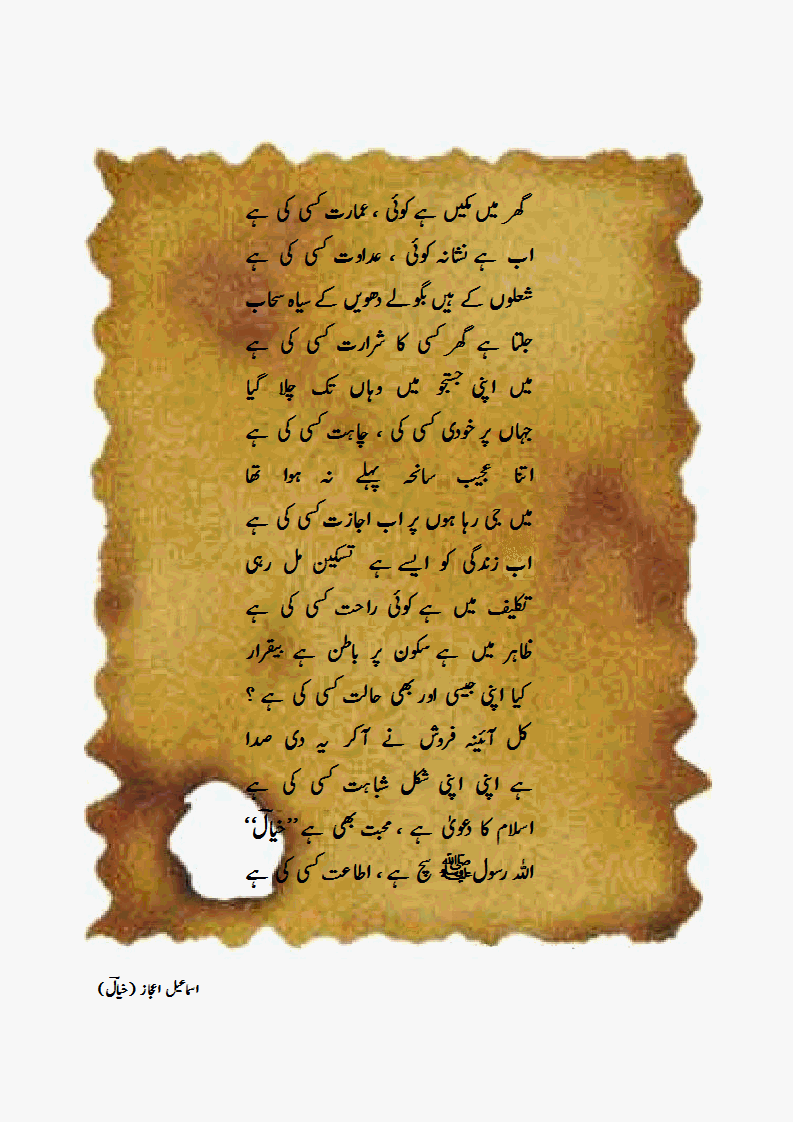 گھر میں مکیں ہے کوئی ، عمارت کسی کی ہے
اب ہے نشانہ کوئی ، عداوت کسی کی ہے
شعلوں کے ہیں بگولے دھویں کے سیاہ سحاب
جلتا ہے گھر کسی کا شرارت کسی کی ہے
میں اپنی جستجو میں وہاں تک چلا گیا
جہاں پر خودی کسی کی ، چاہت کسی کی ہے
اتنا عجیب سانحہ پہلے نہ ہوا تھا
میں جی رہا ہوں پر اب اجازت کسی کی ہے
اب زندگی کو ایسے ہے تسکین مل رہی
تکلیف میں ہے کوئی راحت کسی کی ہے
ظاہر میں ہے سکون پر باطن ہے بیقرار
کیا اپنی جیسی اور بھی حالت کسی کی ہے ؟
کل آئینہ فروش نے آکر یہ دی صدا
ہے اپنی اپنی شکل شباہت کسی کی ہے
اسلام کا دعویٰ ہے ، محبت بھی ہے ’’خیالؔ‘‘
اللہ رسول ﷺ سچ ہے ، اطاعت کسی کی ہے
اسماعیل اعجاز (خیالؔ)